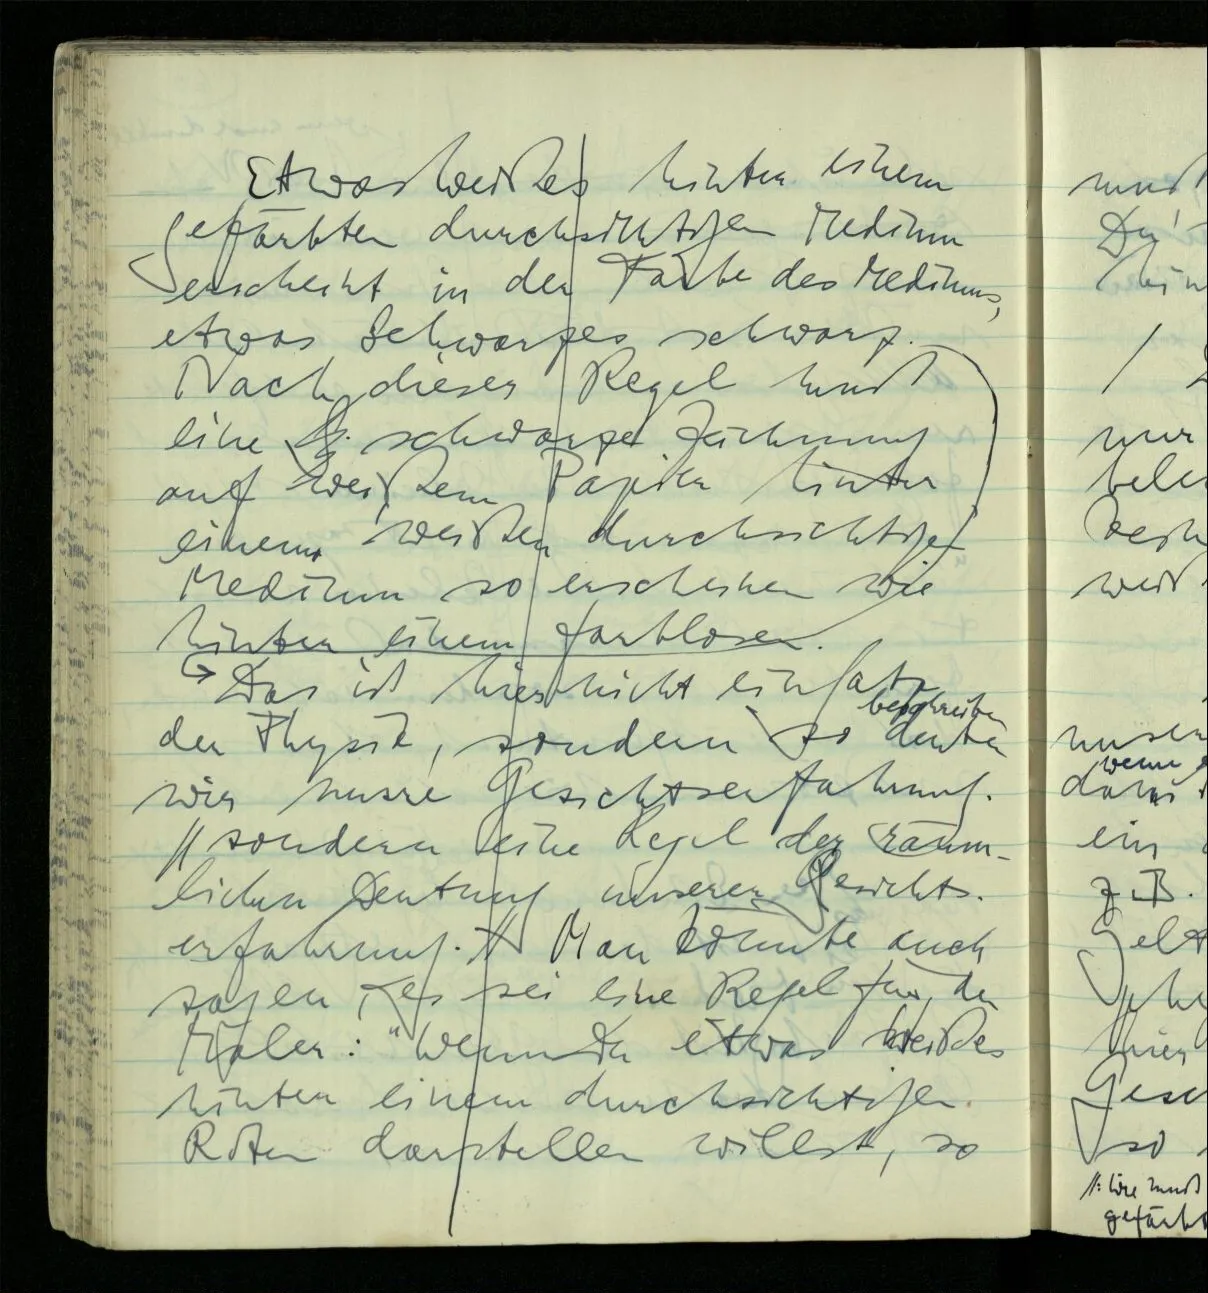 Etwas weißes hinter einem
gefärbten durchsichtigen Medium
erscheint in der Farbe des Mediums,
etwas Schwarzes schwarz.
Nach dieser Regel muß
eine schwarze Zeichnung
auf weißem Papier hinter
einem weißen durchsichtigen
Medium so erscheinen wie
hinter einem farblosen.
Das ist hier nicht ein Satz
beschreiben
der Physik, sondern so deuten
wir unsre Gesichtserfahrung.
// sondern eine Regel der räum-
lichen Deutung unserer Gesichts-
erfahrung. // Man könnte auch
sagen, es sei eine Regel für den
Maler: "Wenn Du etwas weißes
hinter einem durchsichtigen
Roten darstellen willst, so
muß
nur
weiß
wenn
ein
z.B.
hier
so
//: wie muß